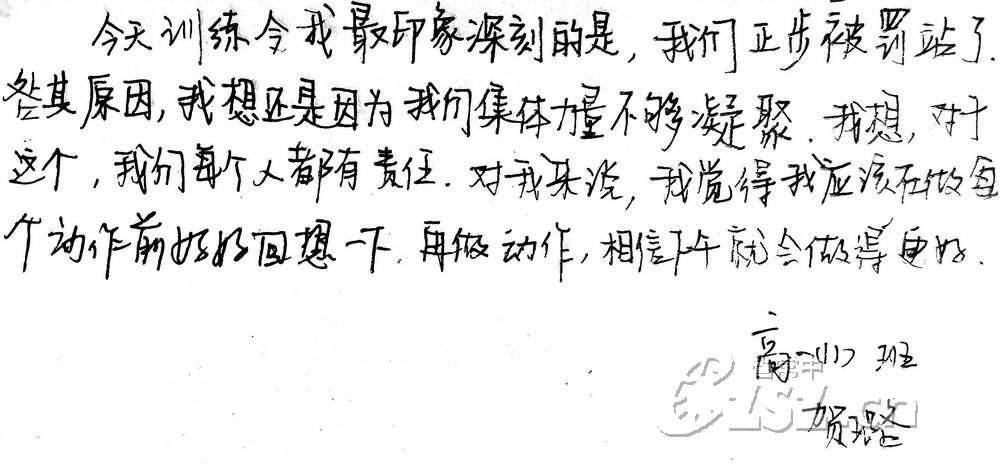 今天训练令我最印象深刻的是，我们正步被罚站了.
咎其原因，我想还是因为我们集体力量不够凝聚.我想，对于
这个，我们每个人都有责任.对我来说，我觉得我应该在做每
个动作前好好回想一下.再做动作，相信下午就会做得更好.
高一(1)班
贺璐